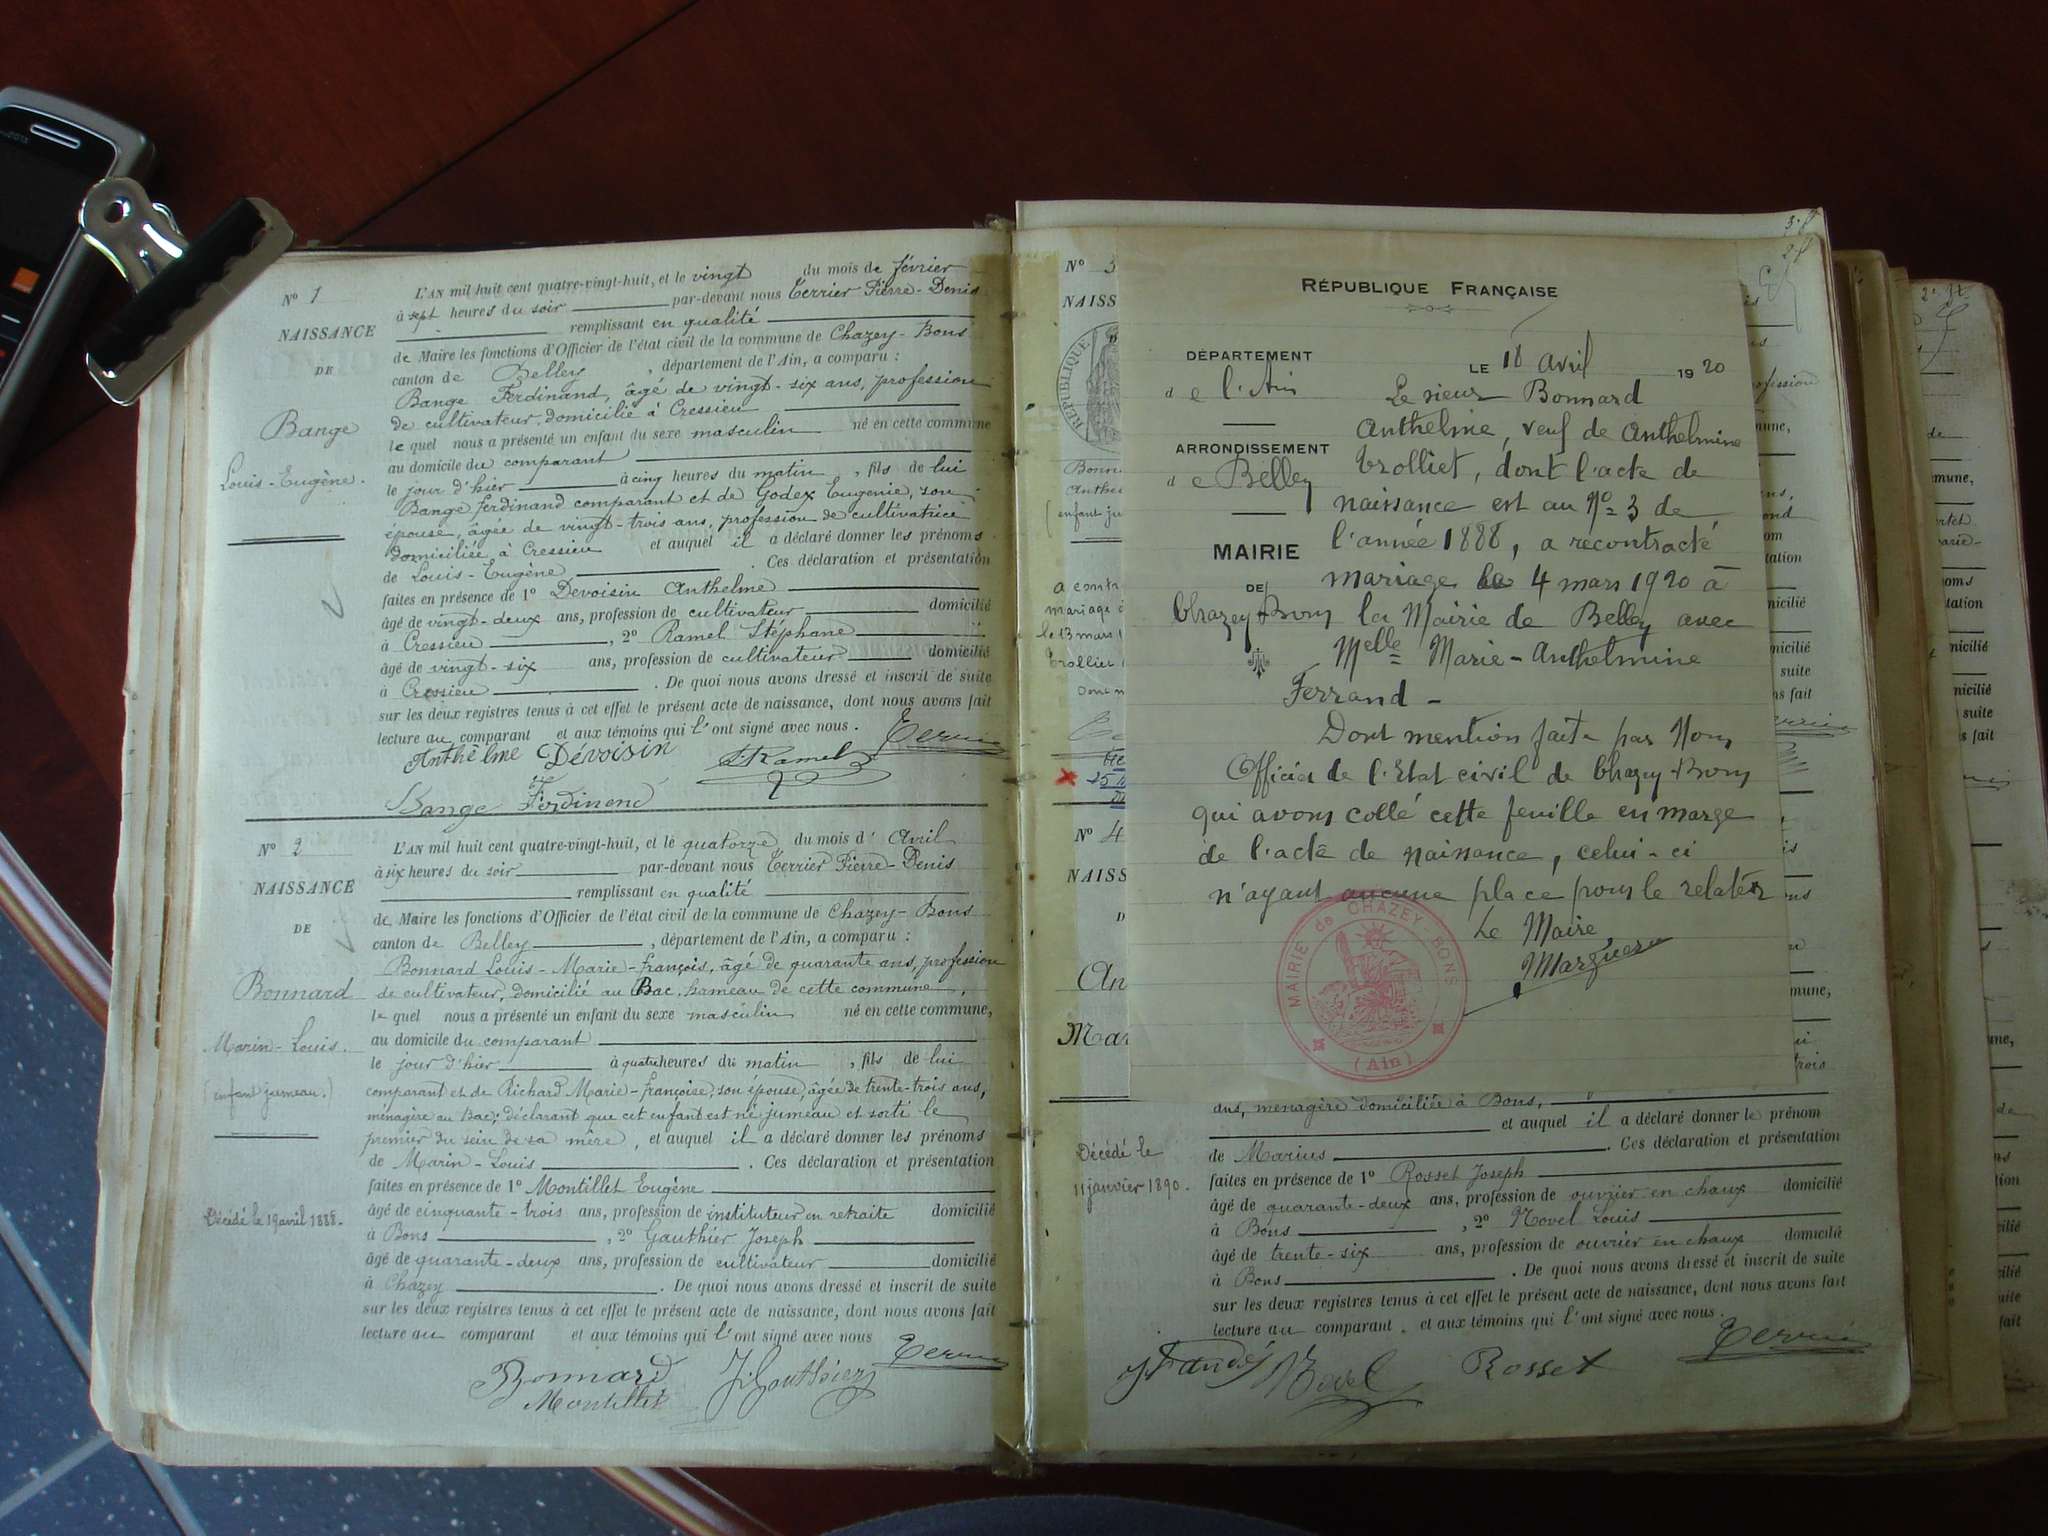 N° 1
NAISSANCE
DE
Bange
Louis-Eugène.
L'AN mil huit cent quatre-vingt-huit, et le vingt du mois de février
à sept heures du soir par-devant nous Terrier Pierre-Denis
remplissant en qualité
de Maire les fonctions d'Officier de l'état civil de la commune de Chazey-Bons
canton de Belley, département de l'Ain, a comparu :
Bange Ferdinand, âgé de vingt-six ans, profession
de cultivateur, domicilié à Cressieu
le quel nous a présenté un enfant du sexe masculin né en cette commune
au domicile du comparant
le jour d'hier à cinq heures du matin, fils de lui
Bange Ferdinand comparant et de Godex Eugénie, son
épouse, âgée de vingt-trois ans, profession de cultivatrice
domiciliée à Cressieu et auquel il a déclaré donner les prénoms
de Louis-Eugène. Ces déclaration et présentation
faites en présence de 1° Devoisin Anthelme
âgé de vingt-deux ans, profession de cultivateur domicilié
à Cressieu, 2° Ramel Stéphane
âgé de vingt-six ans, profession de cultivateur domicilié
à Cressieu. De quoi nous avons dressé et inscrit de suite
sur les deux registres tenus à cet effet le présent acte de naissance, dont nous avons fait
lecture au comparant et aux témoins qui l'ont signé avec nous.
Anthelme Dévoisin S. Ramel Terrier
Bange Ferdinend
N° 2
NAISSANCE
DE
Bonnard
Marin-Louis.
(enfant jumeau.)
Décédé le 19 avril 1888.
L'AN mil huit cent quatre-vingt-huit, et le quatorze du mois d'Avril
à six heures du soir par-devant nous Terrier Pierre-Denis
remplissant en qualité
de Maire les fonctions d'Officier de l'état civil de la commune de Chazey-Bons
canton de Belley, département de l'Ain, a comparu :
Bonnard Louis-Marie-François, âgé de quarante ans, profession
de cultivateur, domicilié au Bac, hameau de cette commune,
le quel nous a présenté un enfant du sexe masculin né en cette commune,
au domicile du comparant
le jour d'hier à quatre heures du matin, fils de lui
comparant et de Richard Marie-Françoise, son épouse, âgée de trente-trois ans,
ménagère au Bac; déclarant que cet enfant est né jumeau et sorti le
premier du sein de sa mère, et auquel il a déclaré donner les prénoms
de Marin-Louis. Ces déclaration et présentation
faites en présence de 1° Montillet Eugène
âgé de cinquante-trois ans, profession de instituteur en retraite domicilié
à Bons, 2° Gauthier Joseph
âgé de quarante-deux ans, profession de cultivateur domicilié
à Chazey. De quoi nous avons dressé et inscrit de suite
sur les deux registres tenus à cet effet le présent acte de naissance, dont nous avons fait
lecture au comparant et aux témoins qui l'ont signé avec nous
Bonnard J. Gauthier Terrier
Montillet
N° 3
NAISS
RÉPUBLIQUE
le 13 mars
N° 4
NAISS
RÉPUBLIQUE FRANÇAISE
DÉPARTEMENT
de l'Ain
ARRONDISSEMENT
de Belley
MAIRIE
DE
Chazey-Bons
LE 18 avril 1920
Le sieur Bonnard
Anthelme, veuf de Anthelmine
Trolliet, dont l'acte de
naissance est au N° 3 de
l'année 1888, a recontracté
mariage le 4 mars 1920 à
la Mairie de Belley avec
Melle Marie-Anthelmine
Ferrand -
Dont mention faite par Nous
Officier de l'Etat civil de Chazey-Bons
qui avons collé cette feuille en marge
de l'acte de naissance, celui-ci
n'ayant aucune place pour le relater
Le Maire
MAIRIE de CHAZEY-BONS
(Ain)
Décédé le
11 janvier 1890.
ans, ménagère domiciliée à Bons,
et auquel il a déclaré donner le prénom
de Marius. Ces déclaration et présentation
faites en présence de 1° Rosset Joseph
âgé de quarante-deux ans, profession de ouvrier en chaux domicilié
à Bons, 2° Novel Louis
âgé de trente-six ans, profession de ouvrier en chaux domicilié
à Bons. De quoi nous avons dressé et inscrit de suite
sur les deux registres tenus à cet effet le présent acte de naissance, dont nous avons fait
lecture au comparant, et aux témoins qui l'ont signé avec nous.
Novel Rosset Terrier